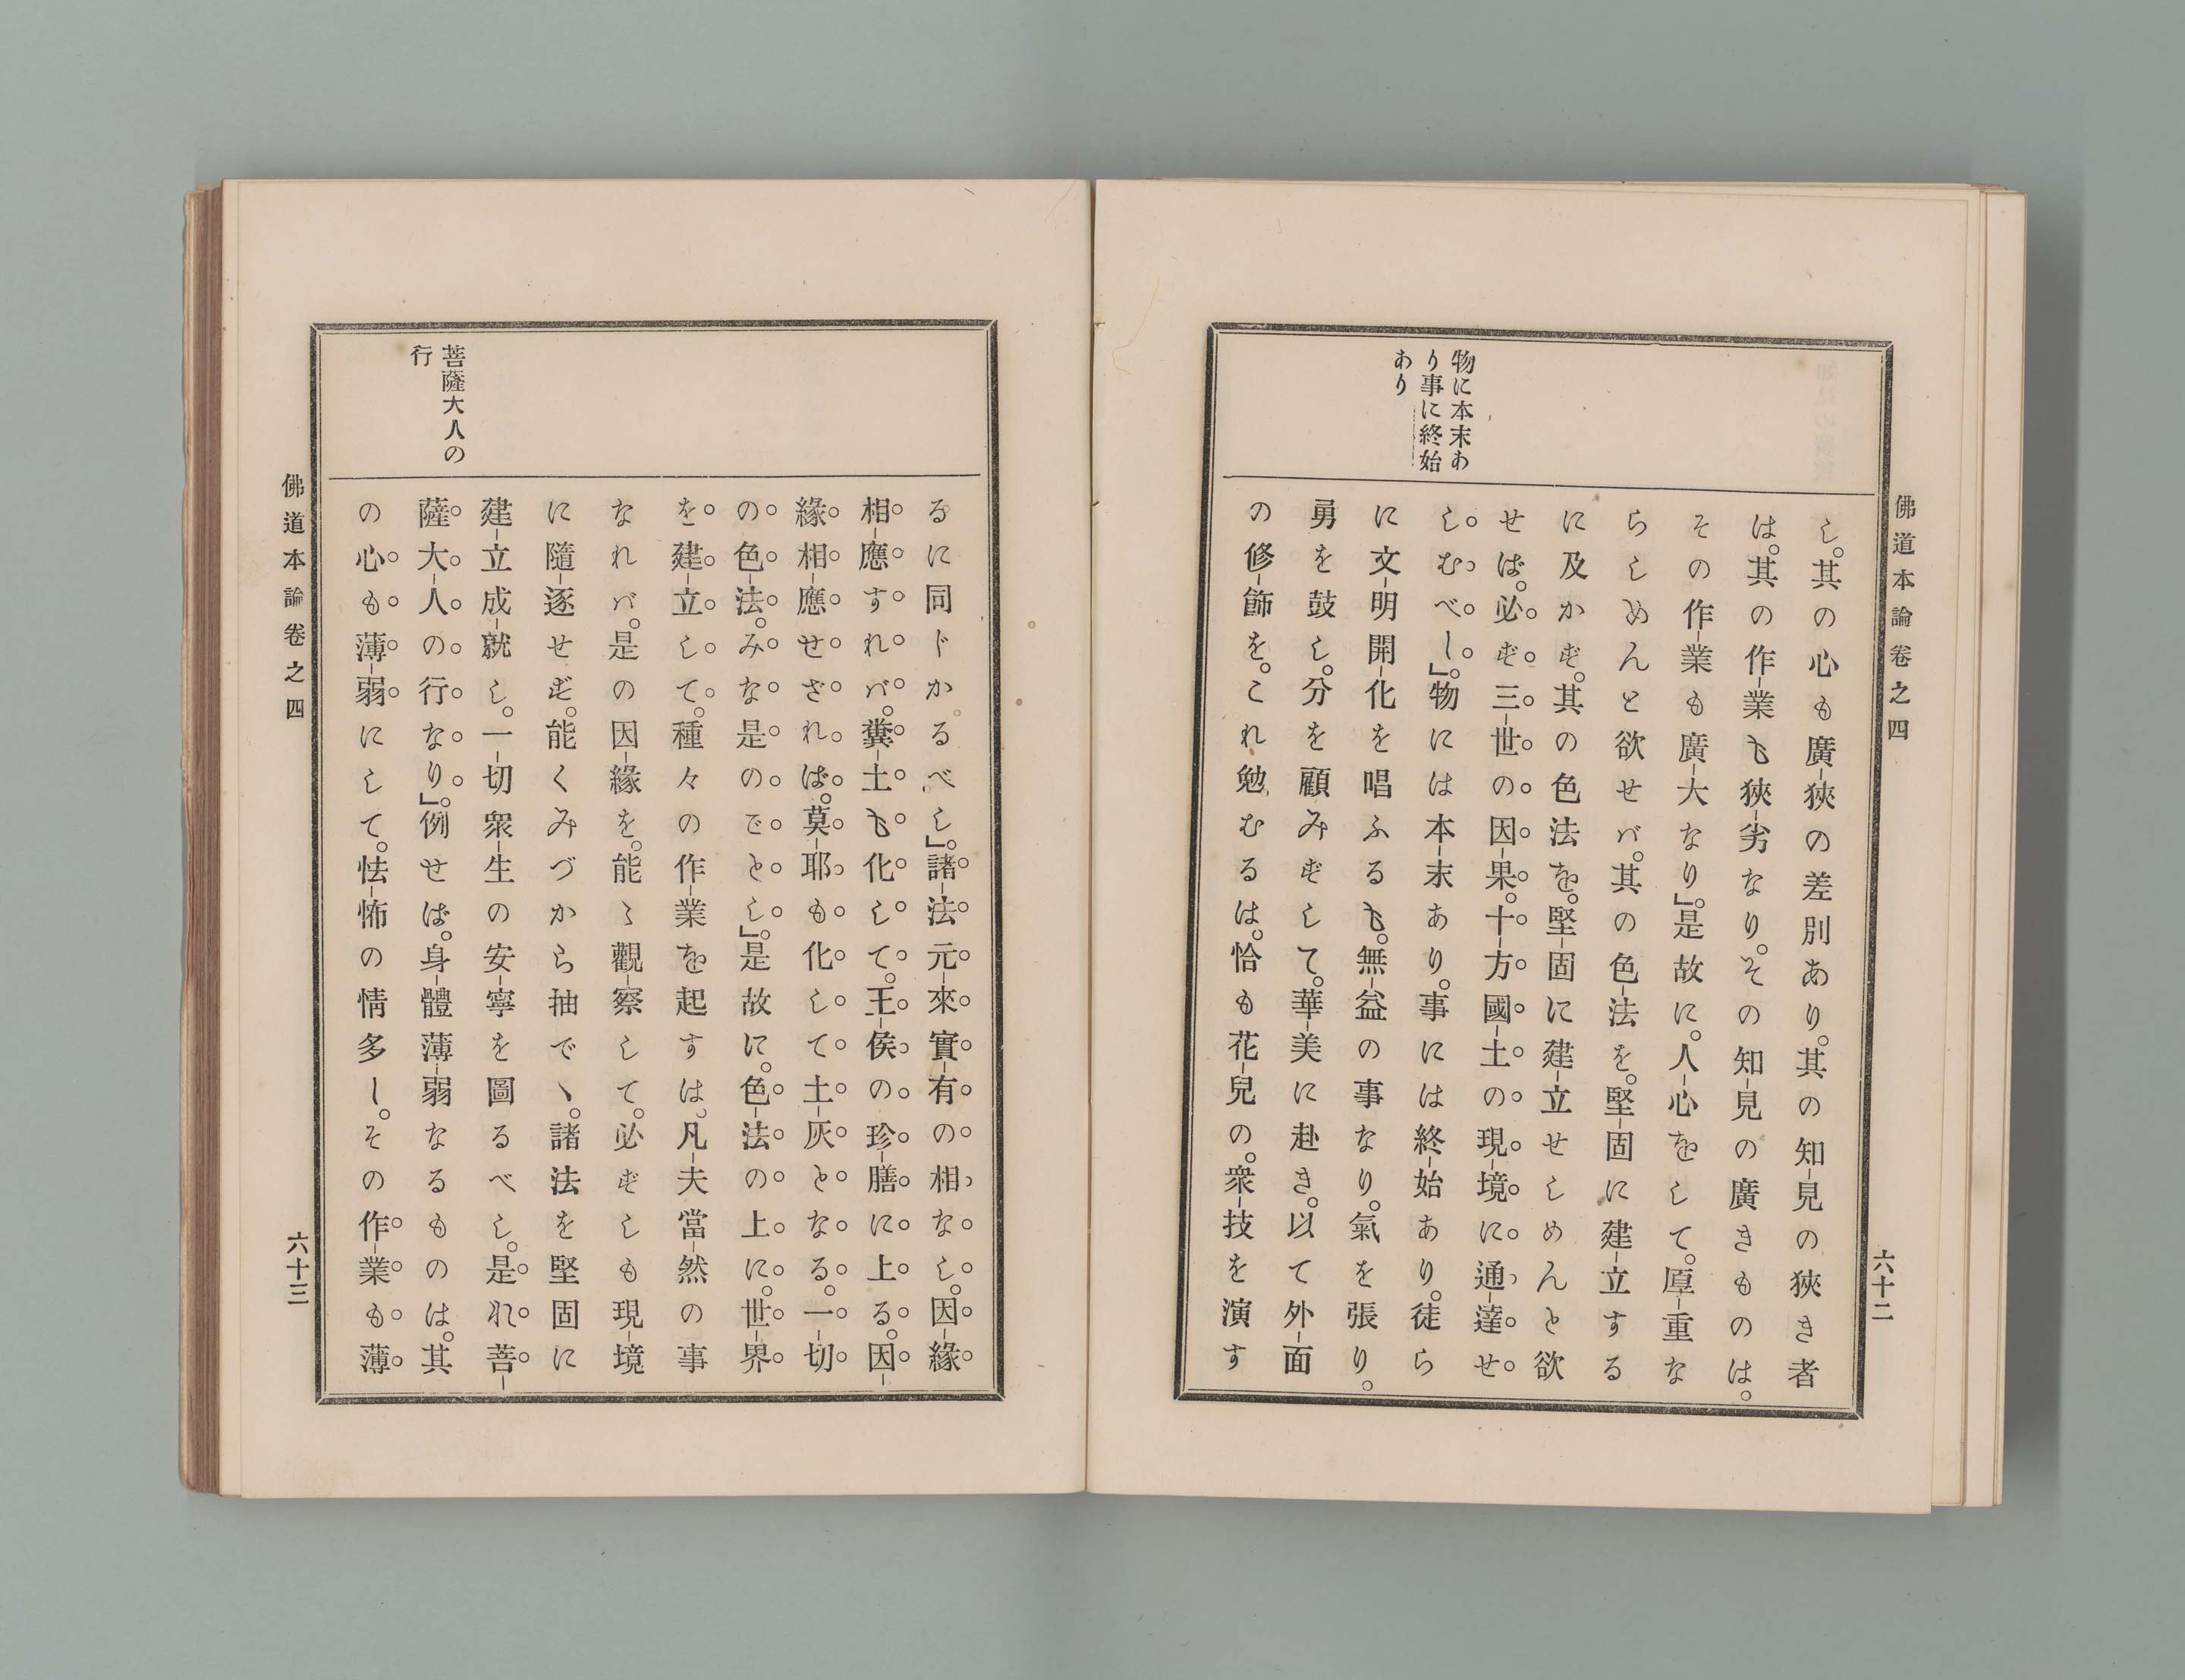 佛道本論卷之四
六十二
物に本末あ
り事に終始
あり
し。其の心も廣狹の差別あり。其の知見の狹き者
は。其の作業も狹劣なり。その知見の廣きものは。
その作業も廣大なり」。是故に。人心をして。厚重な
らしめんと欲せバ。其の色法を。堅固に建立する
に及かず。其の色法を。堅固に建立せしめんと欲
せば。必ず三世の因果。十方國土の現境に通達せ
しむべし」。物には本末あり。事には終始あり。徒ら
に文明開化を唱ふるも。無益の事なり。氣を張り。
勇を鼓し。分を顧みずして。華美に赴き。以て外面
の修飾を。これ勉むるは。恰も花兒の。衆技を演す
菩薩大人の
行
るに同じかるべし」。諸法元來實有の相なし。因緣
相應すれバ。糞土も化して。王侯の珍膳に上る。因
緣相應せされば。莫耶も化して土灰となる。一切
の色法。みな是のごとし」。是故に。色法の上に。世界
を建立して。種々の作業を起すは。凡夫當然の事
なれバ。是の因緣を。能く觀察して。必ずしも現境
に隨逐せず。能くみづから抽でゝ。諸法を堅固に
建立成就し。一切衆生の安寧を圖るべし。是れ菩
薩大人の行なり」。例せば。身體薄弱なるものは。其
の心も薄弱にして。怯怖の情多し。その作業も薄
佛道本論卷之四
六十三